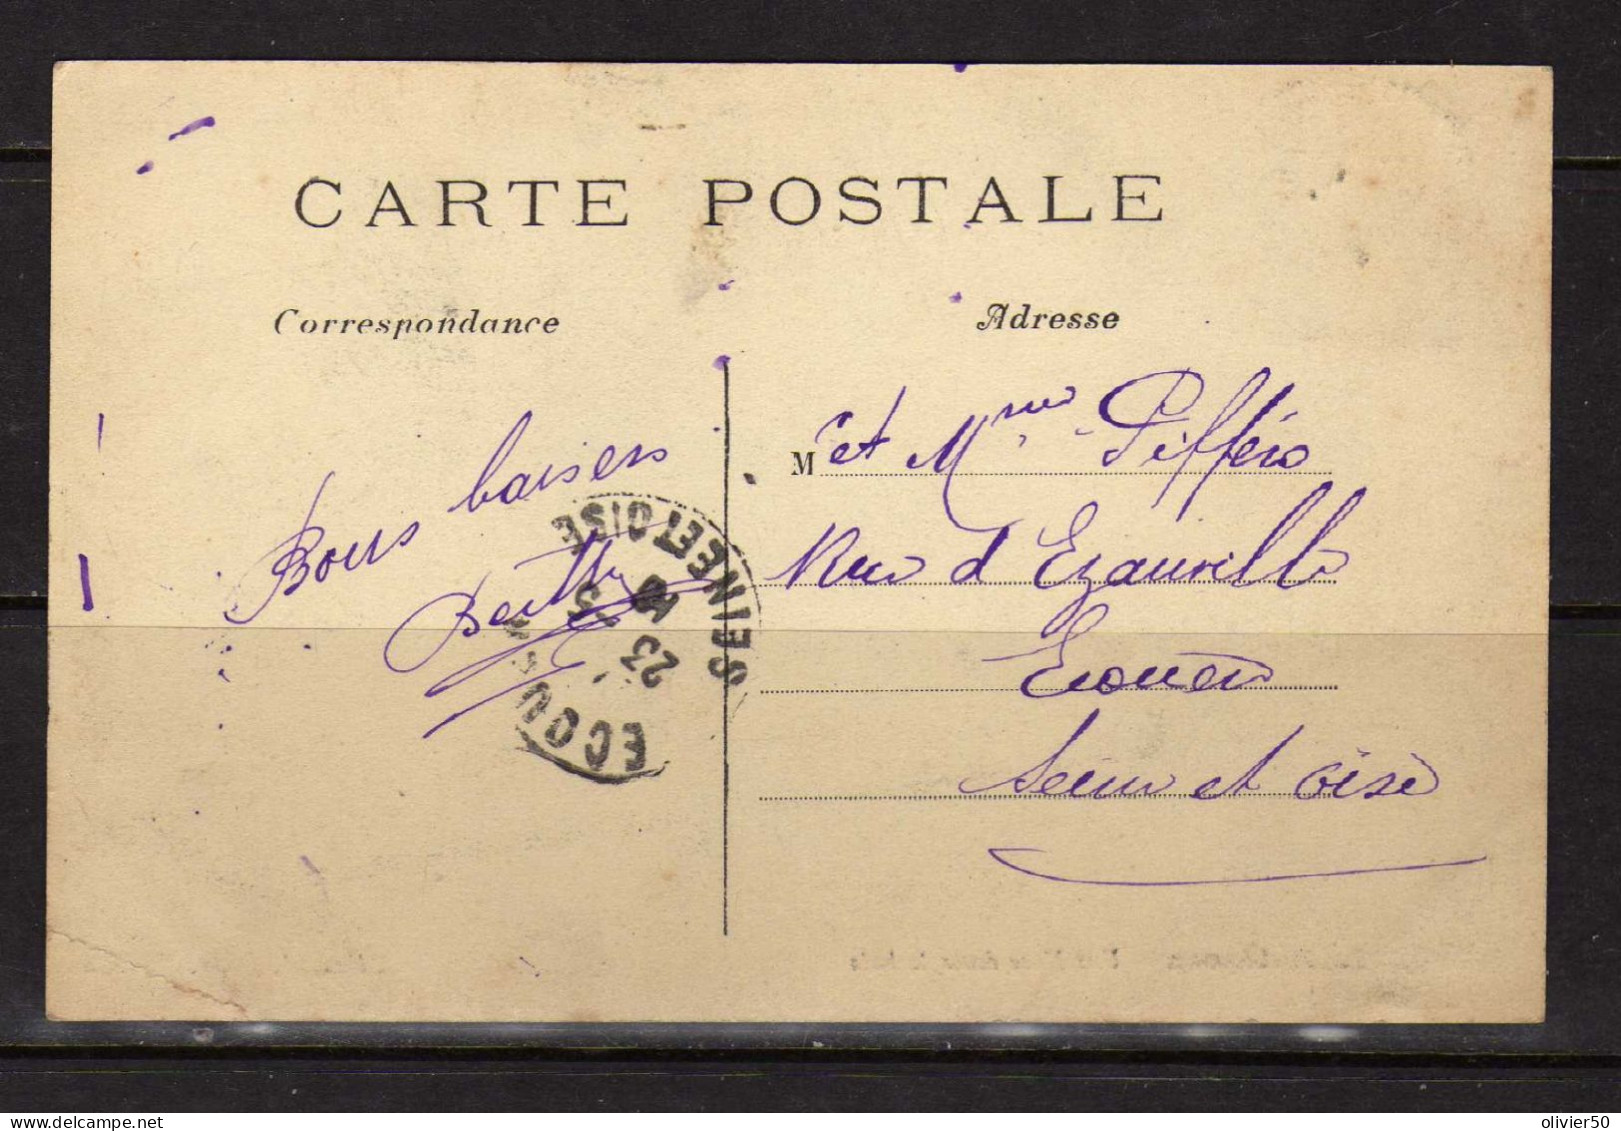 CARTE POSTALE
Correspondance
Adresse
Bons baisers
Berthe
M et Mme Pifféro
Rue d Ezanville
Ecouen
Seine et Oise
SEINE ET OISE
23
ECOU
delcampe.net
olivier50